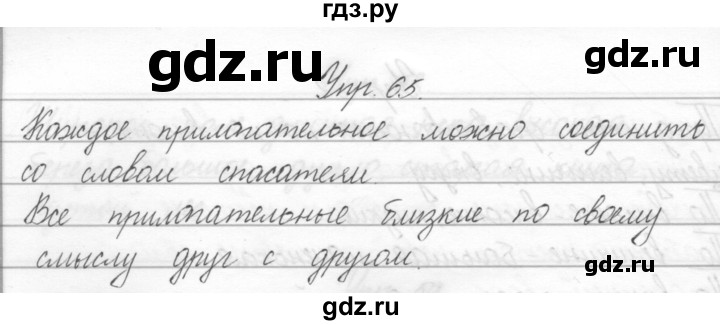 гдз.ру
gdz.ru gdz.ru
Упр. 65.
Каждое прилагательное можно соединить
со словом спасатели.
Все прилагательные близкие по своему
смыслу друг с другом.
gdz.ru gdz.ru
gdz.ru